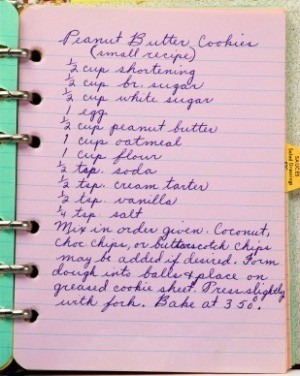 Peanut Butter Cookies
(small recipe)
1/2 cup shortening
1/2 cup br. sugar
1/2 cup white sugar
1 egg
1/2 cup peanut butter
1 cup oatmeal
1 cup flour
1/2 tsp. soda
1/2 tsp. cream tarter
1/2 tsp. vanilla
1/4 tsp salt
Mix in order given. Coconut,
choc chips, or butterscotch chips
may be added if desired. Form
dough into balls & place on
greased cookie sheet. Press slightly
with fork. Bake at 350°.
SAUCES
Salad Dressings